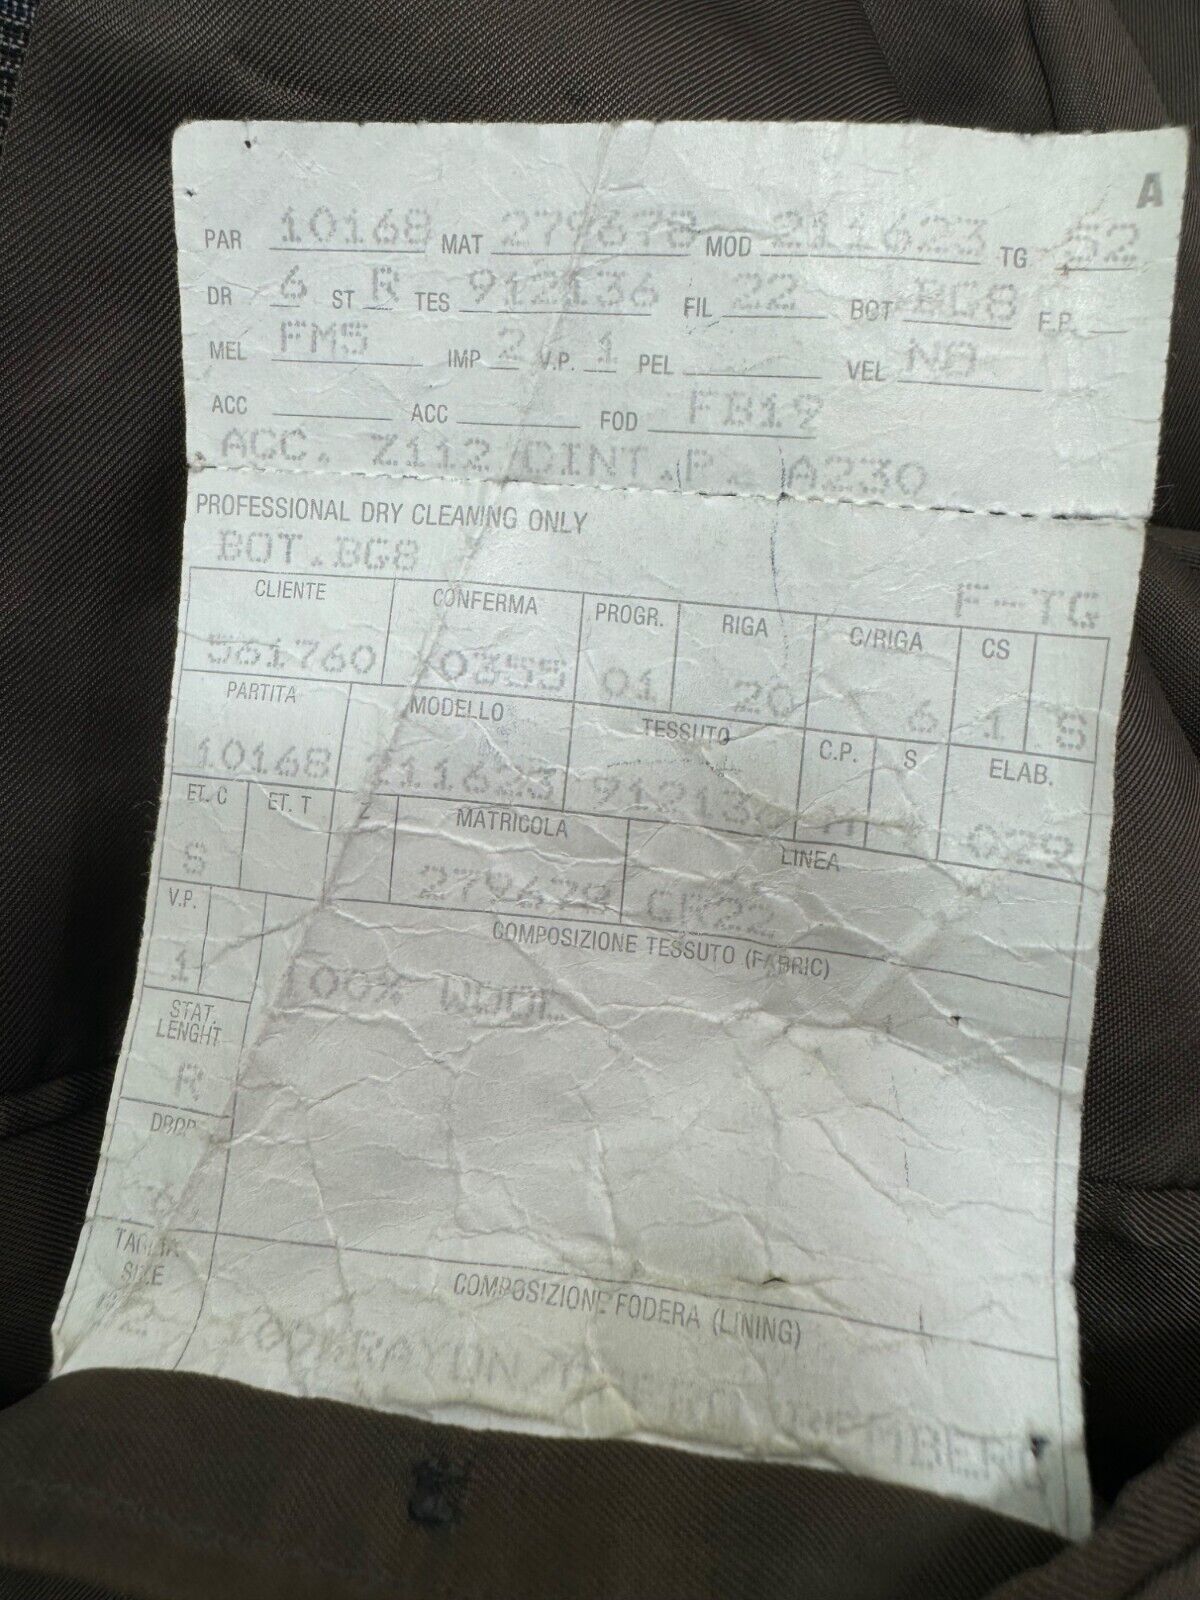 A
PAR 10168 MAT 279678 MOD 211623 TG 52
DR 6 ST R TES 912136 FIL 22 BOT BG8 F.P.
MEL FM5 IMP 2 V.P. 1 PEL VEL N8
ACC ACC FOD FB19
ACC. Z112/CINT.P. A230
PROFESSIONAL DRY CLEANING ONLY
BOT.BG8
F-TG
CLIENTE CONFERMA PROGR. RIGA C/RIGA CS
561760 0355 01 20 6 1 S
PARTITA MODELLO TESSUTO C.P. S ELAB.
10168 211623 912136 M 029
ET. C ET. T Z MATRICOLA LINEA
S 279678 GR22
V.P. COMPOSIZIONE TESSUTO (FABRIC)
1 100% WOOL
STAT.
LENGHT
R
DROP
6
TAGLIA
SIZE
COMPOSIZIONE FODERA (LINING)